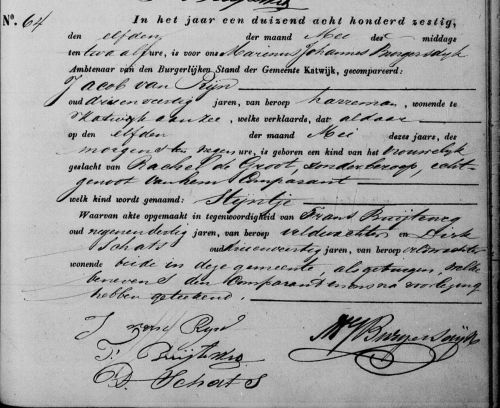 No. 64
In het jaar een duizend acht honderd zestig,
den elfden der maand Mei des middags
ten twaalf ure, is voor ons Marinus Johannes Burgersdyk
Ambtenaar van den Burgerlijken Stand der Gemeente Katwijk, gecompareerd:
Jacob van Rijn
oud drieenveertig jaren, van beroep wonende te
Katwijk aan zee, welke verklaarde, dat aldaar
op den elfden der maand Mei dezes jaars, des
morgens ten negen ure, is geboren een kind van het vrouwelijk
geslacht van Rachel de Groot, zonder beroep, echt-
genoot van hem Comparant
welk kind wordt genaamd: Stijntje
Waarvan akte opgemaakt in tegenwoordigheid van Frans
oud negenendertig jaren, van beroep veldwachter en Dirk
Schats oud jaren, van beroep
wonende beide in deze gemeente, als getuigen, welke
benevens den Comparant na voorlezing
hebben geteekend.
J van Ryn
F.
D. Schats
MJ Burgersdijk